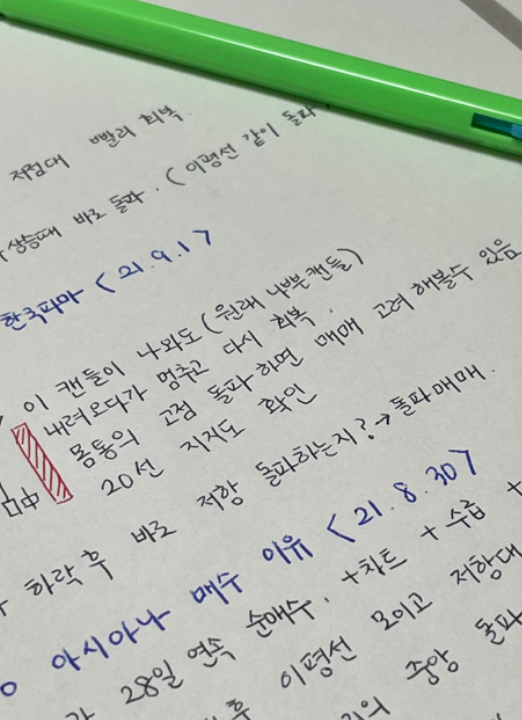 저점대 빨리 회복.
상승때 바로 돌파. (이평선 같이 돌파)
한국파마 <21.9.1>
이 캔들이 나와도 (원래 나쁜캔들)
내려오다가 멈추고 다시 회복.
몸통의 고점 돌파하면 매매 고려 해볼수 있음
20선 지지도 확인
하락 후 바로 저항 돌파하는지? → 돌파매매.
아시아나 매수 이유 <21.8.30>
28일 연속 순매수. +차트 + 수급 +
후 이평선 모이고 저항대
중앙 돌파